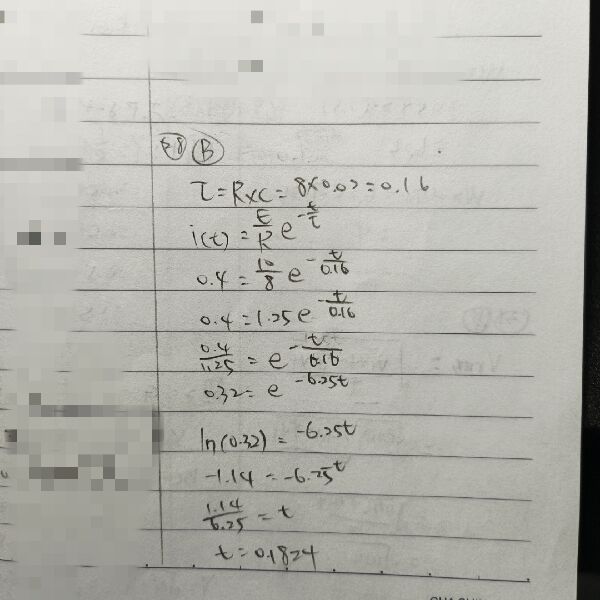 28 B
τ=R×C=8×0.02=0.16
i(t)=E/R e^-t/τ
0.4=10/8 e^-t/0.16
0.4=1.25e^-t/0.16
0.4/1.25=e^-t/0.16
0.32=e^-6.25t
ln(0.32)=-6.25t
-1.14=-6.25t
1.14/6.25=t
t=0.1824